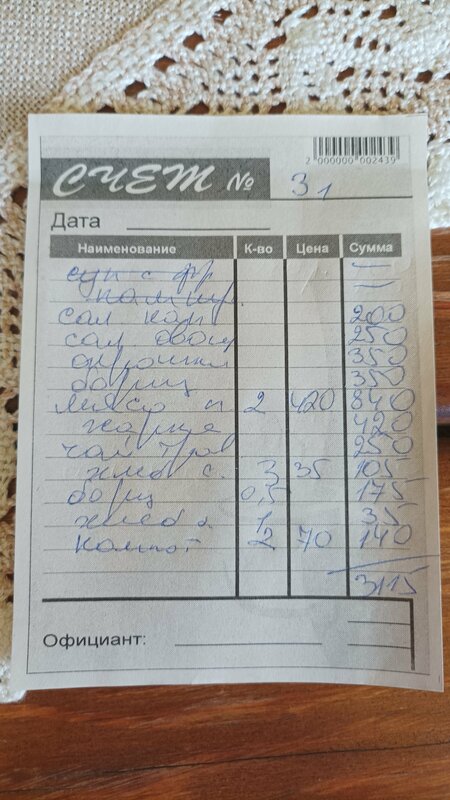 2 000000 002439
СЧЕТ № 31
Дата
Наименование К-во Цена Сумма
суп с фр —
—
сал кап 200
сал овощ 250
350
борщ 350
мясо п 2 420 840
жарке 420
чай трав 250
хлеб с. 3 35 105
борщ 0,5 175
хлеб 1 35
компот 2 70 140
3115
Официант: